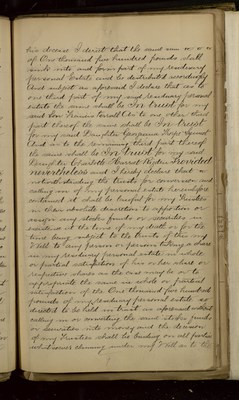 his decease I direct that the said sum
of One thousand five hundred pounds shall
sink into and form part of my residuary
personal Estate and be distributed accordingly
And subject as aforesaid I declare that as to
one third part of my said residuary personal
estate the same shall be In trust for my
said Son And as to one other third
part thereof the same shall be In trust
for my said Daughter Georgiana
And as to the remaining third part thereof
the same shall be In trust for my said
Daughter Charlotte Harriet Provided
nevertheless and I hereby declare that
notwithstanding the trusts for conversion and
calling in of my personal estate hereinbefore
contained it shall be lawful for my Trustees
in their absolute discretion to apportion or
assign any stocks funds or securities in
existence at the time of my death or for the
time being subject to the trusts of this my
Will to any person or persons taking a share
in my residuary personal estate in whole
or partial satisfaction of his or her share or
respective shares as the case may be or to
appropriate the same in whole or partial
satisfaction of the One thousand five hundred
pounds of my residuary personal estate so
directed to be held in trust as aforesaid without
calling in or converting the said stocks funds
or securities into money and the decision
of my Trustees shall be binding on all parties
claiming under my Will as to the